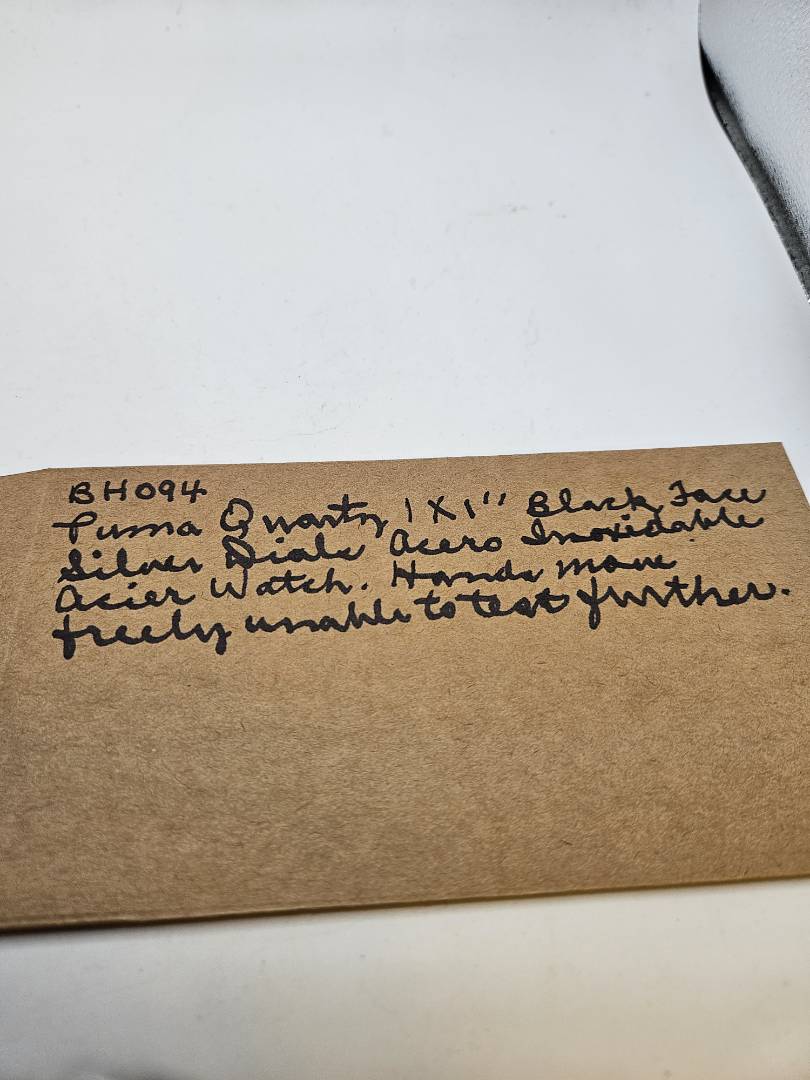 BH094
Puma Quartz 1 X 1" Black Face
Silver Dials Acero Inoxidable
Acier Watch. Hands move
freely unable to test further.